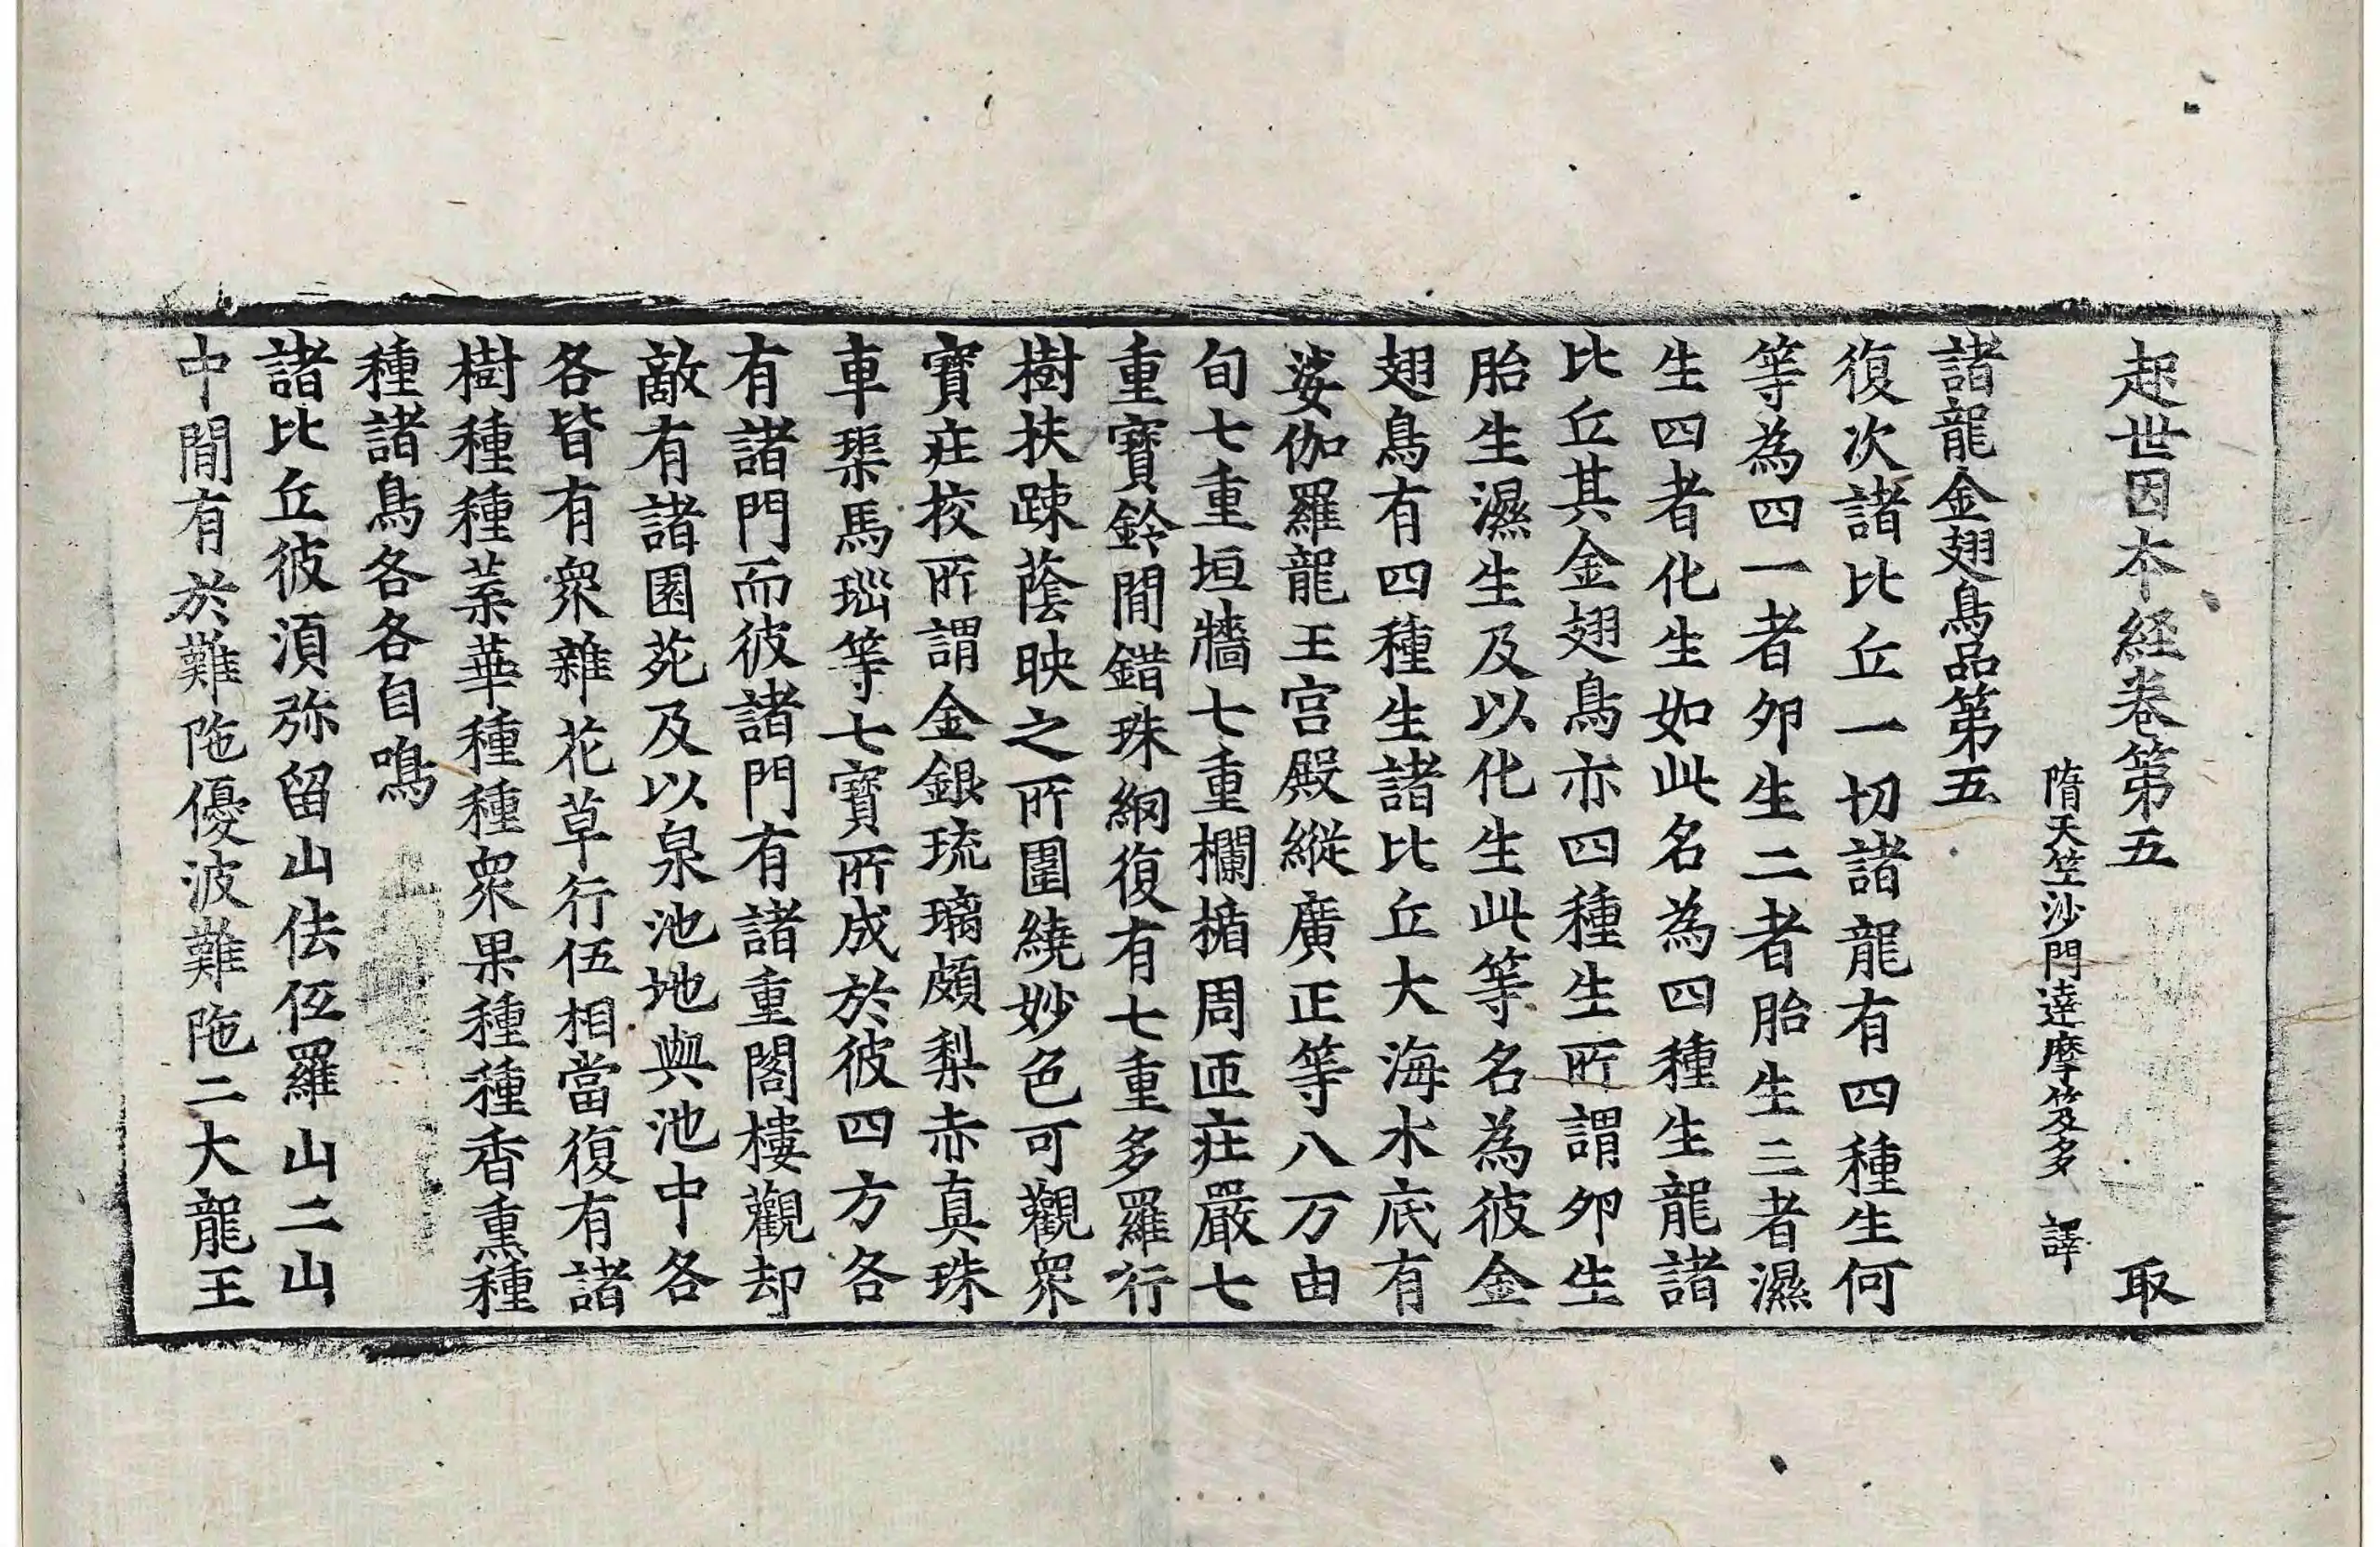 起世因本経卷第五 取
隋天竺沙門達摩笈多 譯
諸龍金翅鳥品第五
復次諸比丘一切諸龍有四種生何
等為四一者夘生二者胎生三者濕
生四者化生如此名為四種生龍諸
比丘其金翅鳥亦四種生所謂夘生
胎生濕生及以化生此等名為彼金
翅鳥有四種生諸比丘大海水底有
娑伽羅龍王宮殿縱廣正等八万由
旬七重垣牆七重欄楯周匝莊嚴七
重寶鈴間錯珠網復有七重多羅行
樹扶踈蔭映之所圍繞妙色可觀衆
寶莊校所謂金銀琉璃頗梨赤真珠
車𤦲馬瑙等七寶所成於彼四方各
有諸門而彼諸門有諸重閣樓觀却
敵有諸園苑及以泉池地與池中各
各皆有衆雜花草行伍相當復有諸
樹種種葉華種種衆果種種香熏種
種諸鳥各各自鳴
諸比丘彼湏弥留山佉伍羅山二山
中間有於難陁優波難陁二大龍王